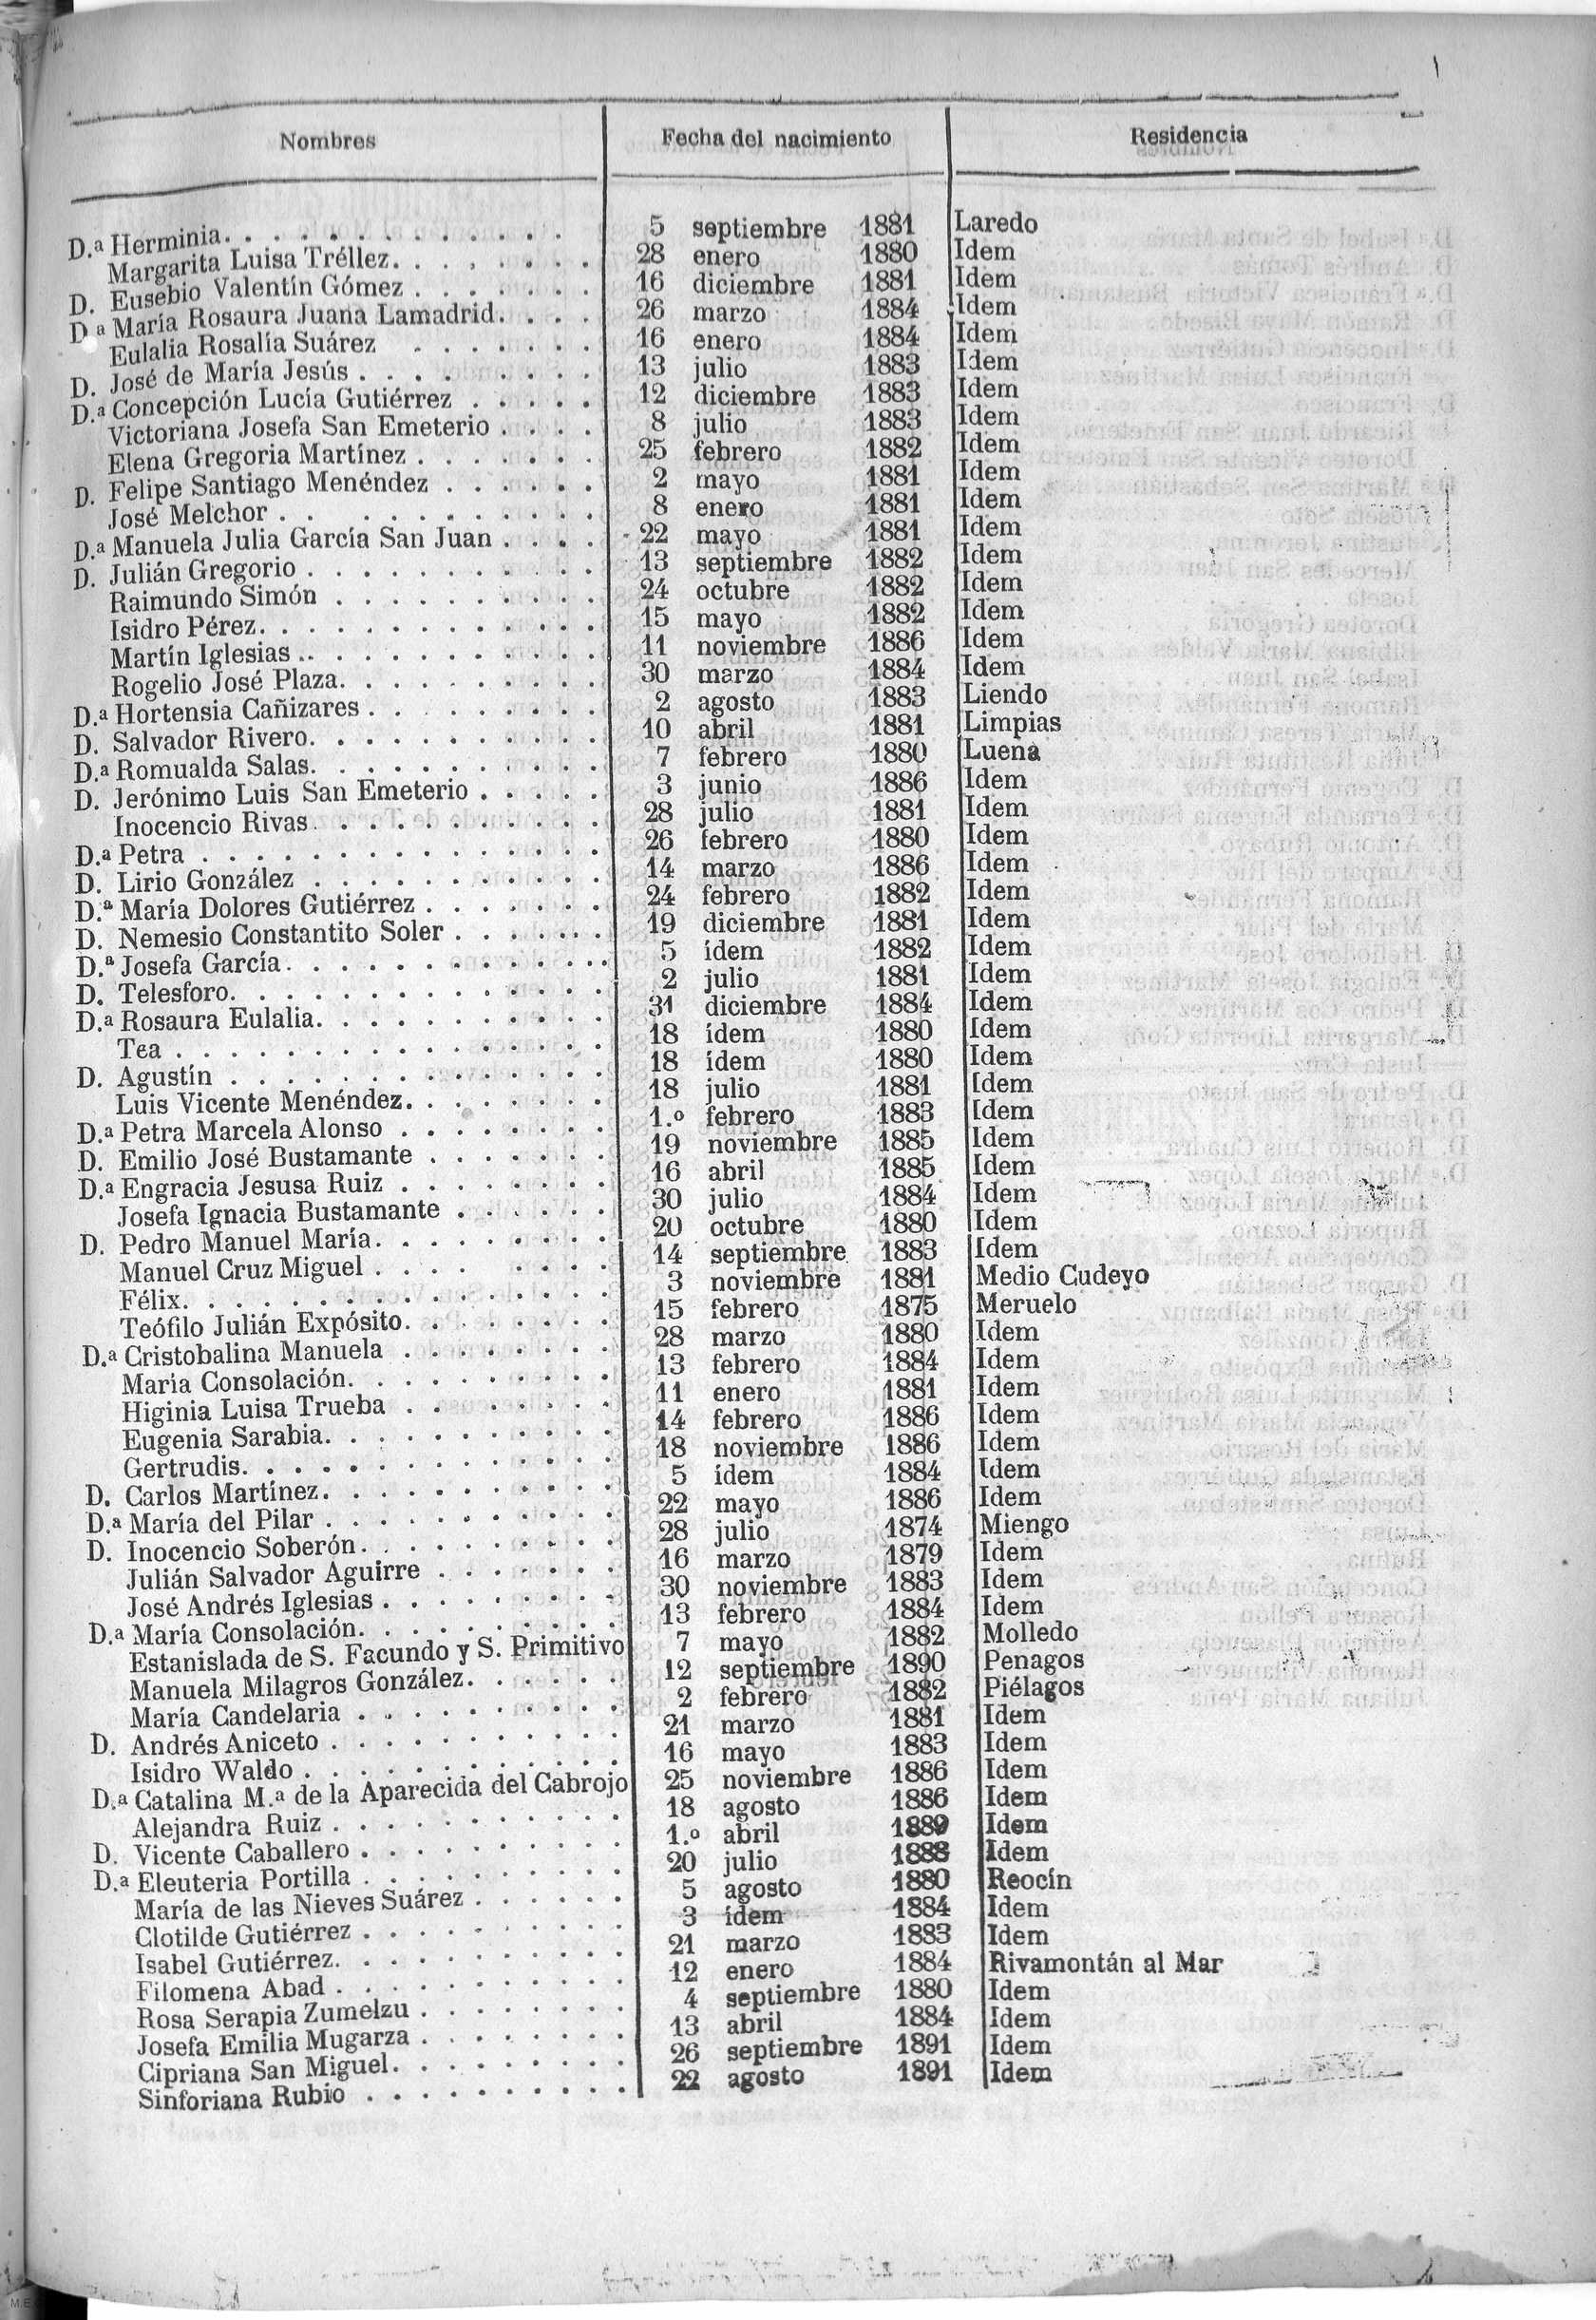 Nombres Fecha del nacimiento Residencia
D.ª Herminia. 5 septiembre 1881 Laredo
Margarita Luisa Tréllez. 28 enero 1880 Idem
D. Eusebio Valentín Gómez 16 diciembre 1881 Idem
D ª María Rosaura Juana Lamadrid. 26 marzo 1884 Idem
Eulalia Rosalía Suárez 16 enero 1884 Idem
D. José de María Jesús 13 julio 1883 Idem
D.ª Concepción Lucía Gutiérrez 12 diciembre 1883 Idem
Victoriana Josefa San Emeterio 8 julio 1883 Idem
Elena Gregoria Martínez 25 febrero 1882 Idem
D. Felipe Santiago Menéndez 2 mayo 1881 Idem
José Melchor 8 enero 1881 Idem
D.ª Manuela Julia García San Juan 22 mayo 1881 Idem
D. Julián Gregorio 13 septiembre 1882 Idem
Raimundo Simón 24 octubre 1882 Idem
Isidro Pérez. 15 mayo 1882 Idem
Martín Iglesias 11 noviembre 1886 Idem
Rogelio José Plaza. 30 marzo 1884 Idem
D.ª Hortensia Cañizares 2 agosto 1883 Liendo
D. Salvador Rivero. 10 abril 1881 Limpias
D.ª Romualda Salas. 7 febrero 1880 Luena
D. Jerónimo Luis San Emeterio 3 junio 1886 Idem
Inocencio Rivas 28 julio 1881 Idem
D.ª Petra 26 febrero 1880 Idem
D. Lirio González 14 marzo 1886 Idem
D.ª María Dolores Gutiérrez 24 febrero 1882 Idem
D. Nemesio Constantito Soler 19 diciembre 1881 Idem
D.ª Josefa García. 5 ídem 1882 Idem
D. Telesforo. 2 julio 1881 Idem
D.ª Rosaura Eulalia. 31 diciembre 1884 Idem
Tea 18 ídem 1880 Idem
D. Agustín 18 ídem 1880 Idem
Luis Vicente Menéndez. 18 julio 1881 Idem
D.ª Petra Marcela Alonso 1.º febrero 1883 Idem
D. Emilio José Bustamante 19 noviembre 1885 Idem
D.ª Engracia Jesusa Ruiz 16 abril 1885 Idem
Josefa Ignacia Bustamante 30 julio 1884 Idem
D. Pedro Manuel María. 20 octubre 1880 Idem
Manuel Cruz Miguel 14 septiembre 1883 Idem
Félix. 3 noviembre 1881 Medio Cudeyo
Teófilo Julián Expósito. 15 febrero 1875 Meruelo
D.ª Cristobalina Manuela 28 marzo 1880 Idem
María Consolación. 13 febrero 1884 Idem
Higinia Luisa Trueba 11 enero 1881 Idem
Eugenia Sarabia. 14 febrero 1886 Idem
Gertrudis. 18 noviembre 1886 Idem
D. Carlos Martínez. 5 ídem 1884 Idem
D.ª María del Pilar 22 mayo 1886 Idem
D. Inocencio Soberón. 28 julio 1874 Miengo
Julián Salvador Aguirre 16 marzo 1879 Idem
José Andrés Iglesias 30 noviembre 1883 Idem
D.ª María Consolación. 13 febrero 1884 Idem
Estanislada de S. Facundo y S. Primitivo 7 mayo 1882 Molledo
Manuela Milagros González. 12 septiembre 1890 Penagos
María Candelaria 2 febrero 1882 Piélagos
D. Andrés Aniceto 21 marzo 1881 Idem
Isidro Waldo 16 mayo 1883 Idem
D.ª Catalina M.ª de la Aparecida del Cabrojo 25 noviembre 1886 Idem
Alejandra Ruiz 18 agosto 1886 Idem
D. Vicente Caballero 1.º abril 1889 Idem
D.ª Eleuteria Portilla 20 julio 1888 Idem
María de las Nieves Suárez 5 agosto 1880 Reocín
Clotilde Gutiérrez 3 ídem 1884 Idem
Isabel Gutiérrez. 21 marzo 1883 Idem
Filomena Abad 12 enero 1884 Rivamontán al Mar
Rosa Serapia Zumelzu 4 septiembre 1880 Idem
Josefa Emilia Mugarza 13 abril 1884 Idem
Cipriana San Miguel. 26 septiembre 1891 Idem
Sinforiana Rubio 22 agosto 1891 Idem